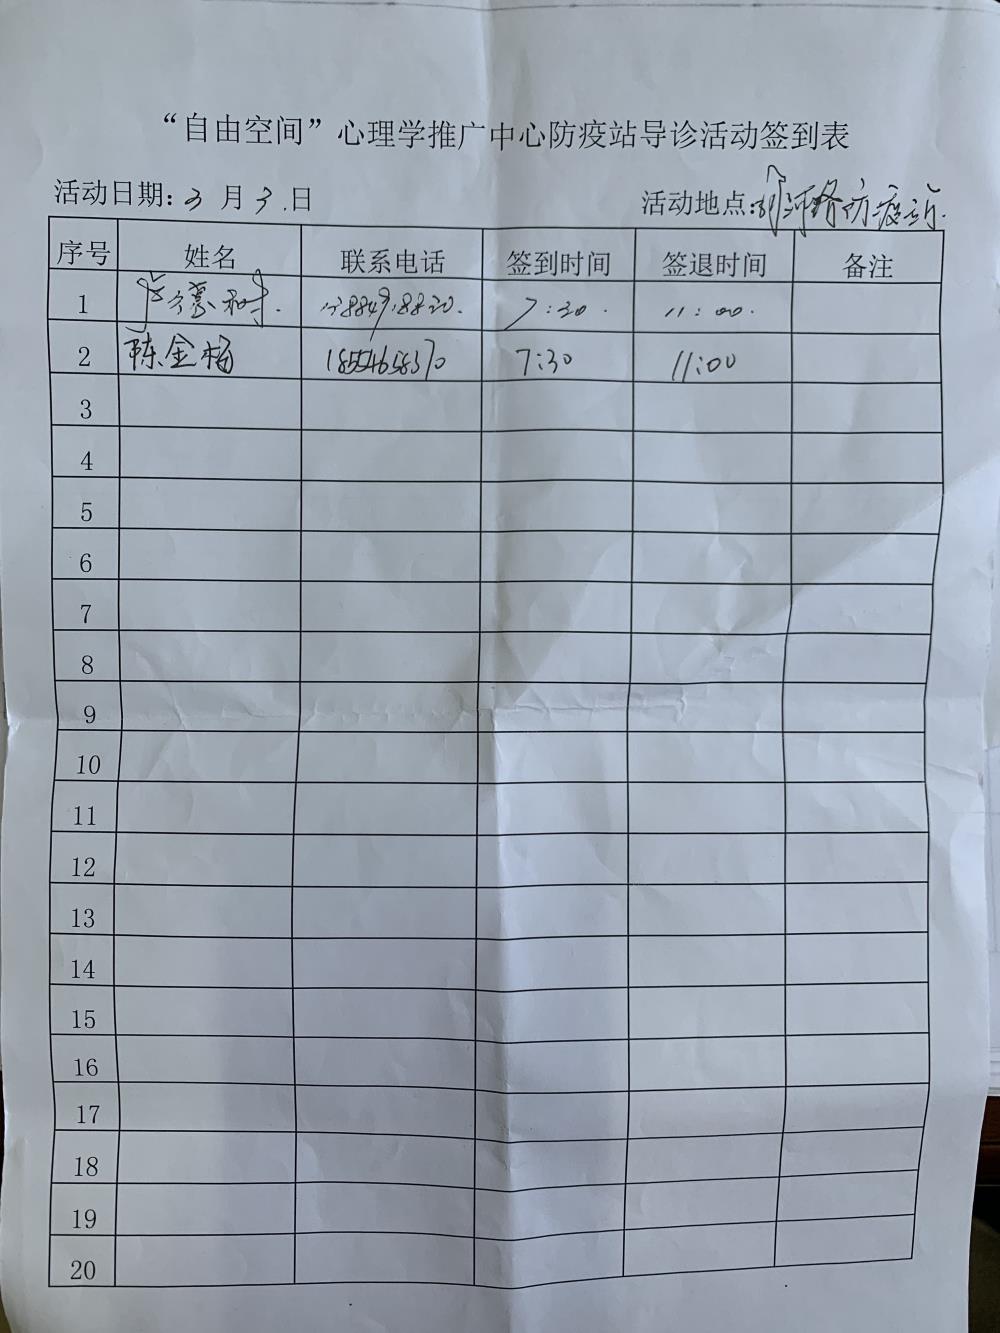 “自由空间”心理学推广中心防疫站导诊活动签到表
活动日期: 3 月 3 .日 活动地点: 河路防疫站.
序号 姓名 联系电话 签到时间 签退时间 备注
1 7:30 . 11:00 .
2 陈金梅 18554658370 7:30 11:00
3
4
5
6
7
8
9
10
11
12
13
14
15
16
17
18
19
20